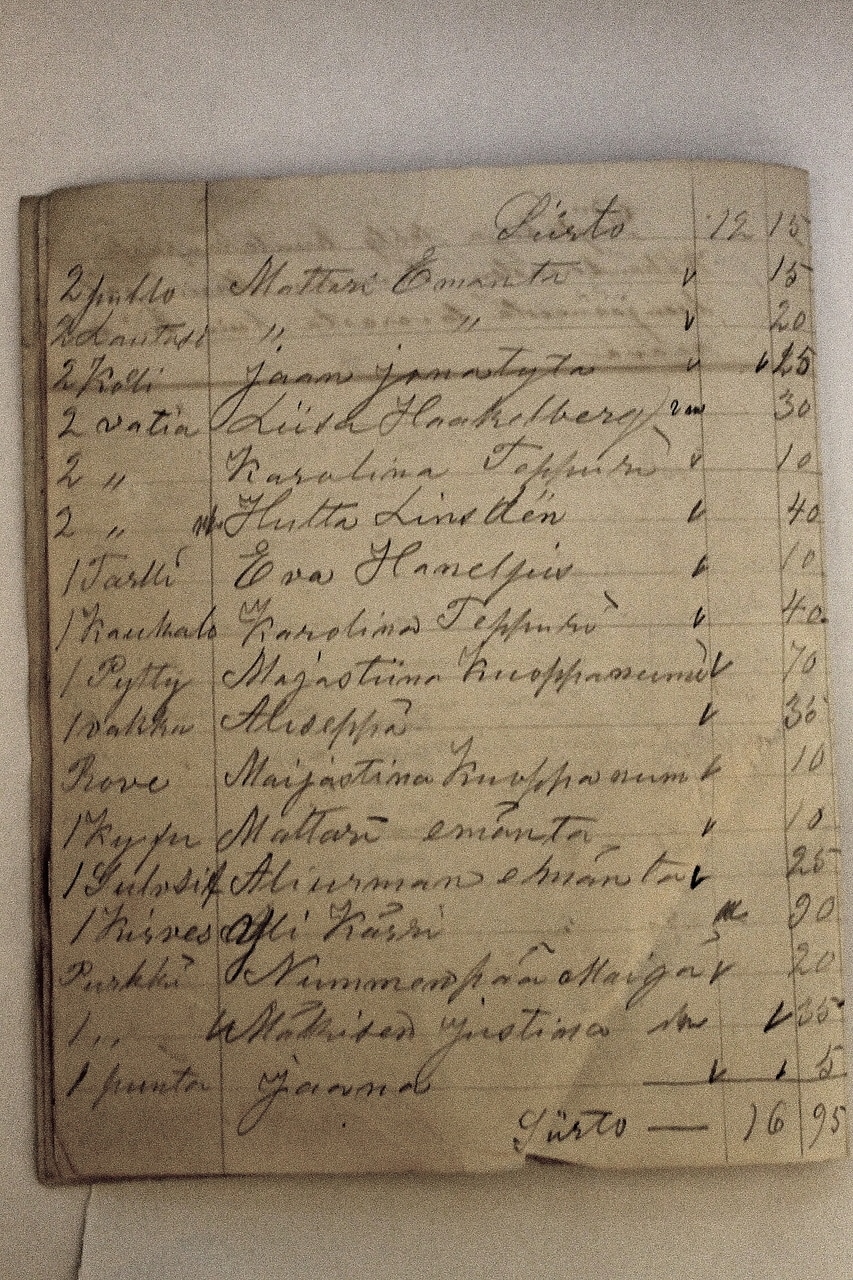 Siirto 12 15
2 pullo Mattari Emänta v 15
2 Lautasi " " v 20
2 Köli jaan jonatyta v v 25
2 vatia Liisa Haakelberg 30
2 " Karolina Teppuri v 10
2 " Hulta Linsdén v 40
1 Tarlli Eva Haneljus v 10
1 Kaukalo Karolina Teppuri v 40
1 Pytty Majastiina Kuoppanumi v 70
1 vakka Aliseppä v 35
Rove Maijastina Kuoppanum v 10
1 Kyfu Mattari emänta v 10
1 Aliurman emänta v 25
1 Kirves Yli Kärri 90
Purkki Nummenpää Maija v 20
1 " Mäkisen justina v 35
1 punta Jaana v v 5
Siirto — 16 95